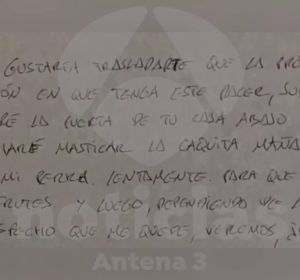 GUSTARÍA TRASLADARTE QUE LA PRÓ
ÓN EN QUE TENGA ESTE PLACER, SU
RE LA PUERTA DE TU CASA ABAJO
HARÉ MASTICAR LA CAQUITA
MI PERRA. LENTAMENTE. PARA QUE
FRUTES Y LUEGO, DEPENDIENDO DE
SPECHO QUE ME QUEDE, VEREMOS,
noticias
Antena 3